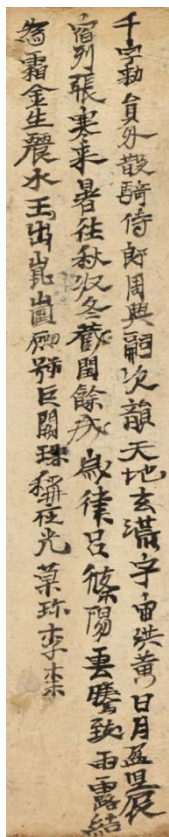 千字勑員外散騎侍郎周興嗣次韻天地玄潢字宙洪黄日月盈昃辰
宿列張寒来暑往秋収冬藏閏餘成歲律吕條陽雲騰致雨露結
為霜金生麗水玉出崑崗劒號巨闕珠稱夜光菓珎李柰